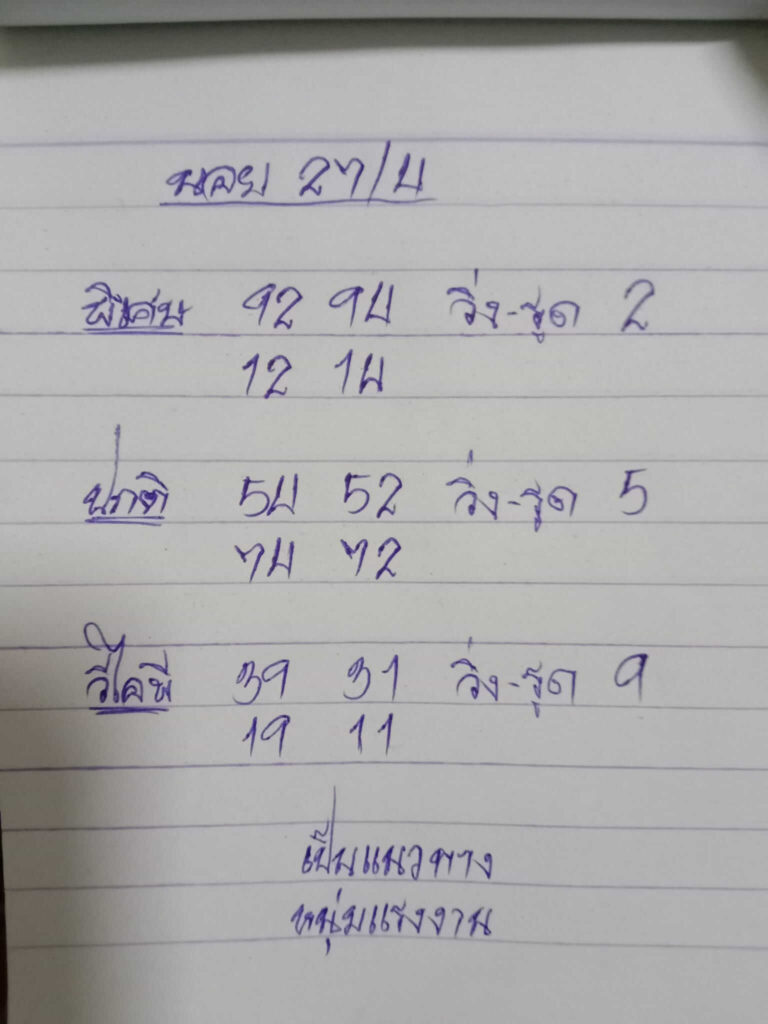 นอย 27/4
พิเศษ 92 94 วิ่ง-รูด 2
12 14
ปกติ 54 52 วิ่ง-รูด 5
74 72
วีไอพี 39 31 วิ่ง-รูด 9
19 11
เป็นแนวทาง
หนุ่มแรงงาน